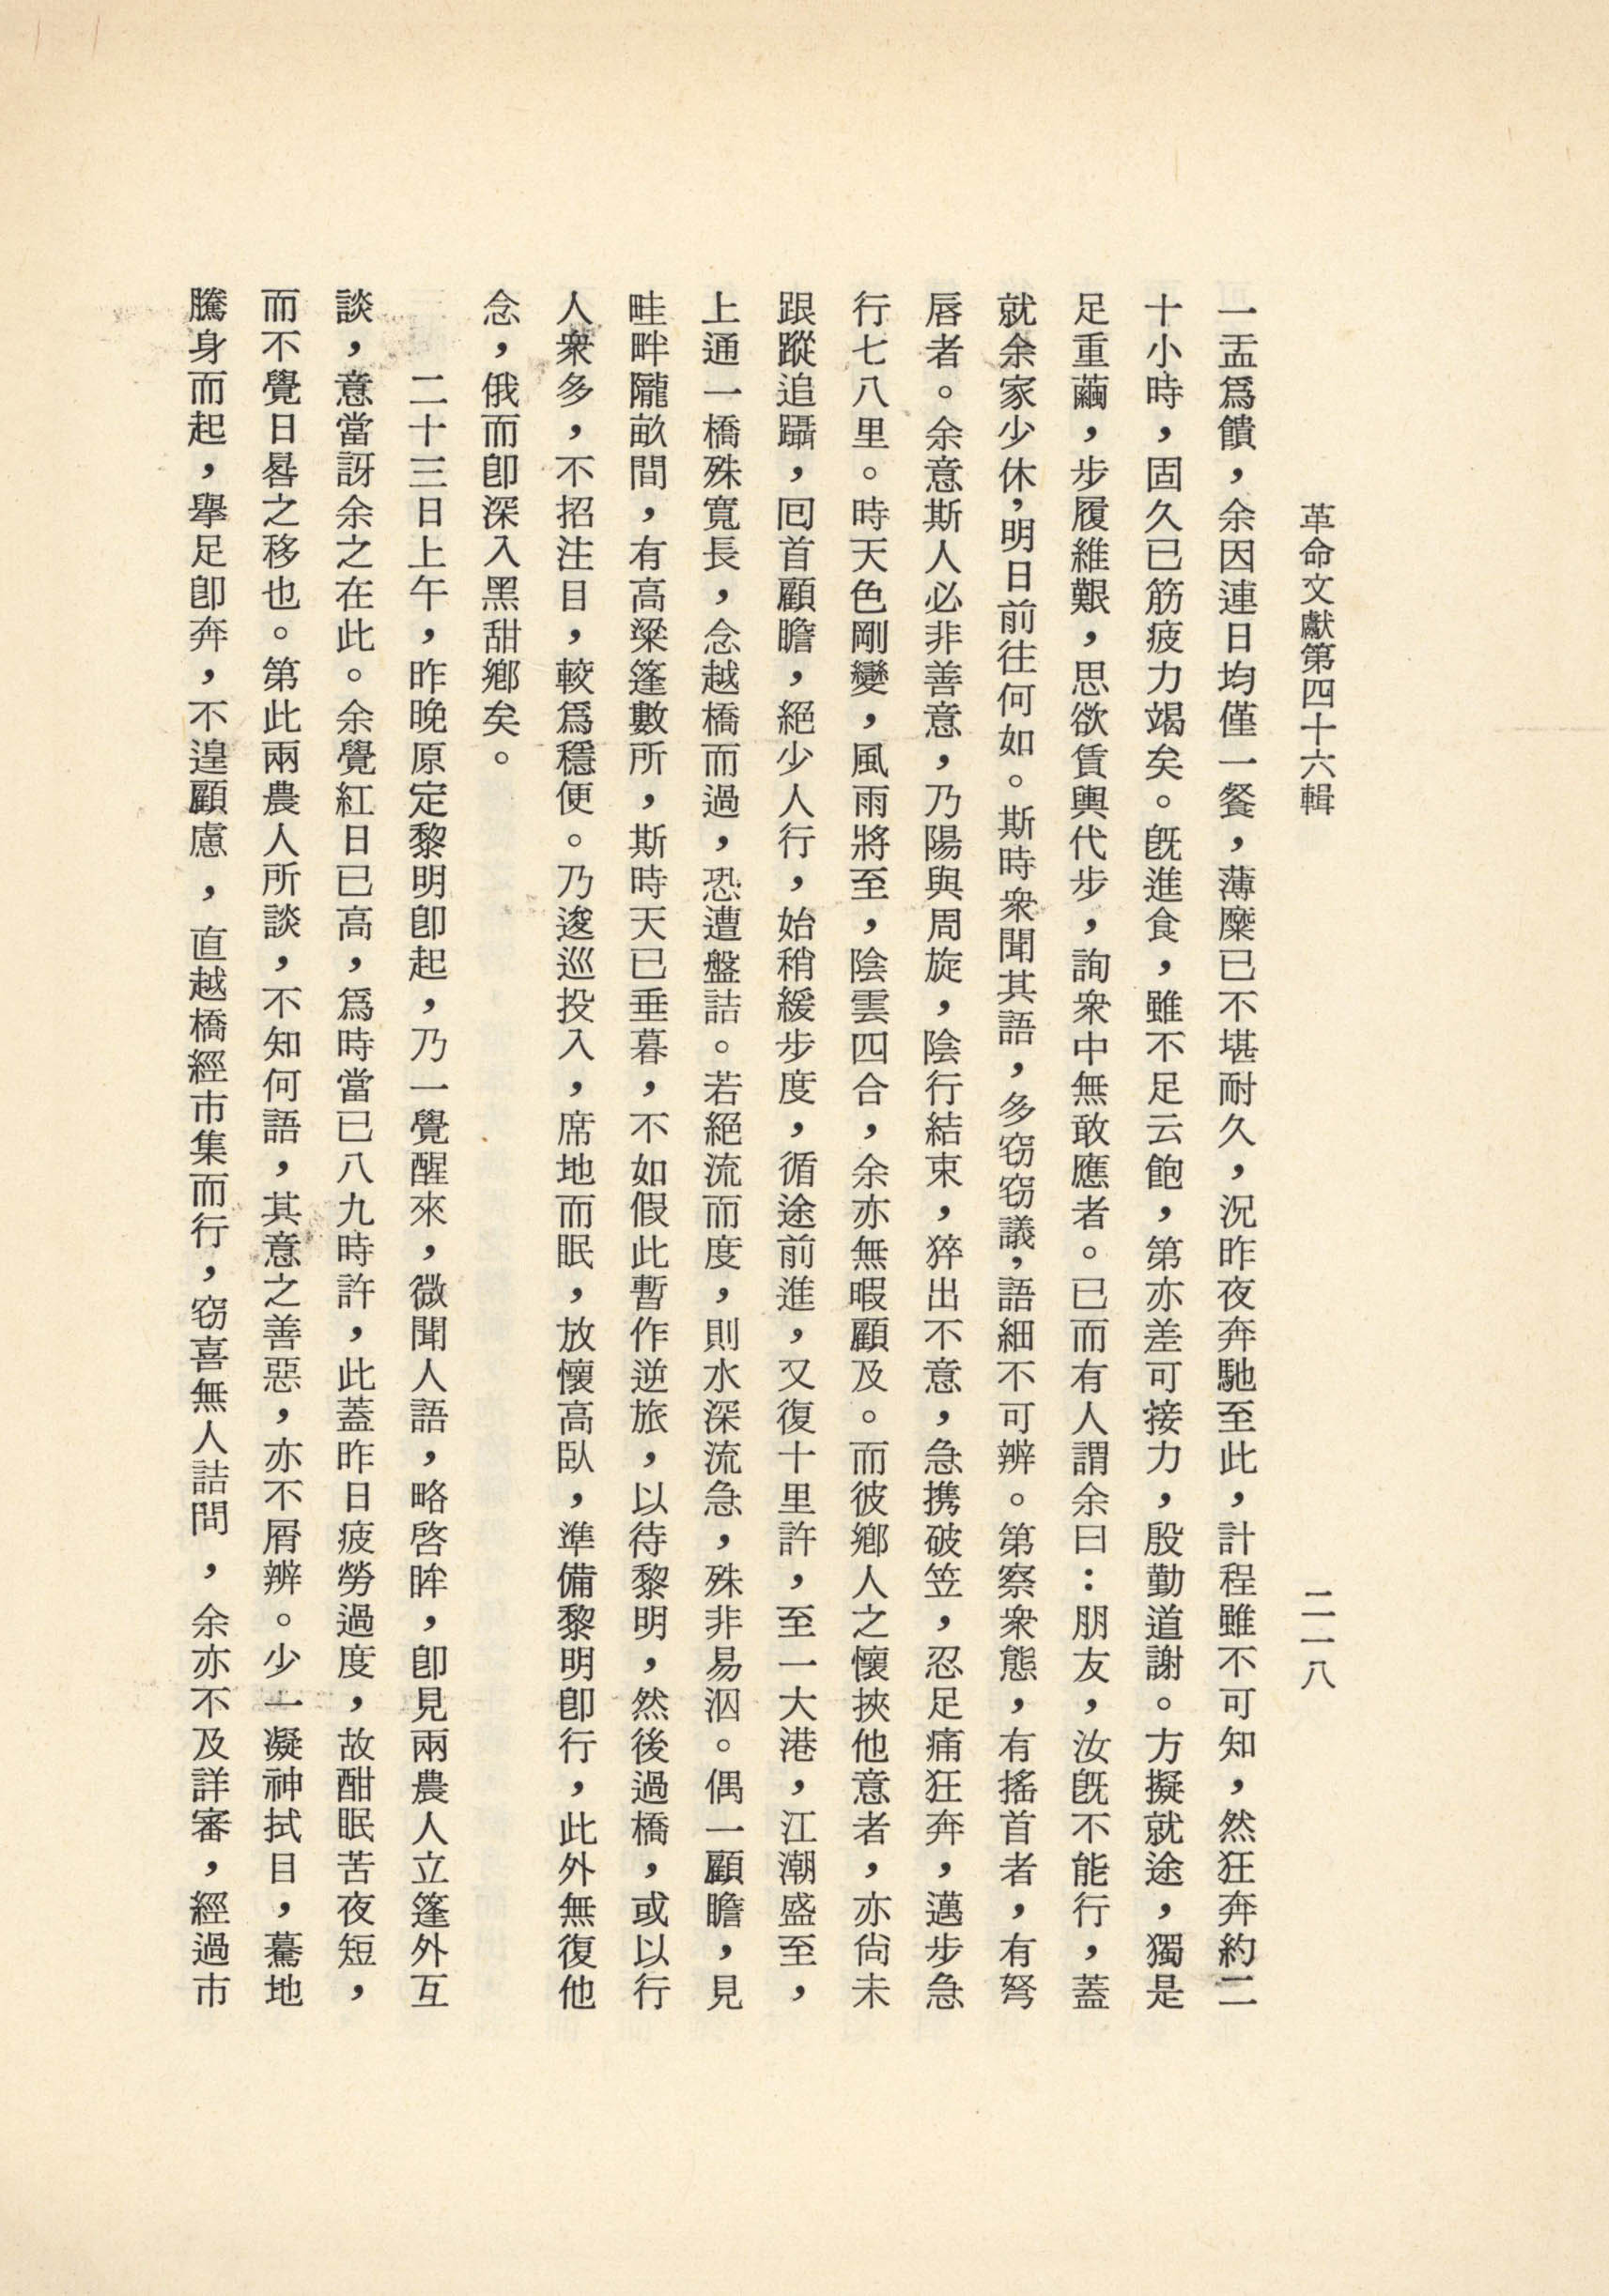 革命文獻第四十六輯
二一八
一盂爲饋，余因連日均僅一餐，薄糜已不堪耐久，況昨夜奔馳至此，計程雖不可知，然狂奔約二
十小時，固久已筋疲力竭矣。旣進食，雖不足云飽，第亦差可接力，殷勤道謝。方擬就途，獨是
足重繭，步履維艱，思欲賃輿代步，詢衆中無敢應者。已而有人謂余曰：朋友，汝旣不能行，蓋
就余家少休，明日前往何如。斯時衆聞其語，多窃窃議，語細不可辨。第察衆態，有搖首者，有弩
唇者。余意斯人必非善意，乃陽與周旋，陰行結束，猝出不意，急携破笠，忍足痛狂奔，邁步急
行七八里。時天色剛變，風雨將至，陰雲四合，余亦無暇顧及。而彼鄉人之懷挾他意者，亦尙未
跟蹤追躡，囘首顧瞻，絕少人行，始稍緩步度，循途前進，又復十里許，至一大港，江潮盛至，
上通一橋殊寬長，念越橋而過，恐遭盤詰。若絕流而度，則水深流急，殊非易泅。偶一顧瞻，見
畦畔隴畝間，有高粱篷數所，斯時天已垂暮，不如假此暫作逆旅，以待黎明，然後過橋，或以行
人衆多，不招注目，較爲穩便。乃逡巡投入，席地而眠，放懷高臥，準備黎明卽行，此外無復他
念，俄而卽深入黑甜鄉矣。
二十三日上午，昨晚原定黎明卽起，乃一覺醒來，微聞人語，略啓眸，卽見兩農人立篷外互
談，意當訝余之在此。余覺紅日已高，爲時當已八九時許，此蓋昨日疲勞過度，故酣眠苦夜短，
而不覺日晷之移也。第此兩農人所談，不知何語，其意之善惡，亦不屑辨。少一凝神拭目，驀地
騰身而起，擧足卽奔，不遑顧慮，直越橋經市集而行，窃喜無人詰問，余亦不及詳審，經過市